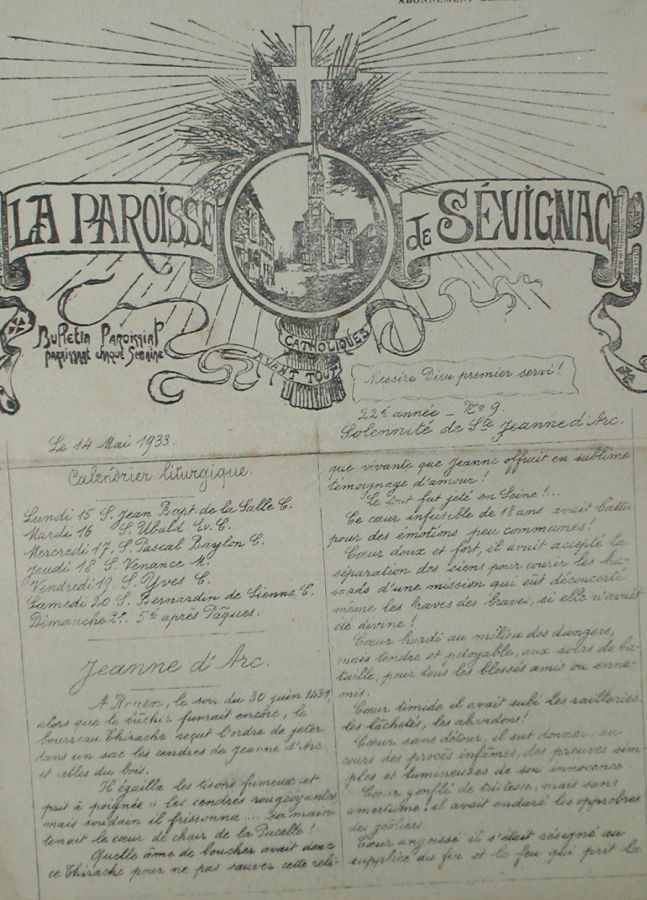 LA PAROISSE de SÉVIGNAC
Bulletin Paroissial
paraissant chaque Semaine
CATHOLIQUES
AVANT TOUT
Messire Dieu premier servi!
22e année - No 9.
Solennité de Ste Jeanne d'Arc.
Le 14 Mai 1933.
Calendrier liturgique.
Lundi 15 S. Jean Bapt. de la Salle C.
Mardi 16 S. Ubald Ev. C.
Mercredi 17. S. Pascal Baylon C.
Jeudi 18 S. Venance M.
Vendredi 19 S. Yves C.
Samedi 20 S. Bernardin de Sienne C.
Dimanche 21. 5e après Pâques.
Jeanne d'Arc.
A Rouen, le soir du 30 juin 1431,
alors que le bûcher fumait encore, le
bourreau Thirache reçut l'ordre de jeter
dans un sac les cendres de Jeanne d'Arc
et celles du bois.
Il égailla les tisons fumeux et
prit à poignée les cendres rougeoyantes
mais soudain il frissonna.... sa main
tenait le cœur de chair de la Pucelle!
Quelle âme de boucher avait donc
ce Thirache pour ne pas sauver cette reli-
que vivante que Jeanne offrait en sublime
témoignage d'amour!
Le tout fut jeté en Seine!...
Ce cœur infusible de 18 ans avait battu
pour des émotions peu communes!
Cœur doux et fort, il avait accepté la
séparation des siens pour courir les ha-
sards d'une mission qui eût déconcerté
même les braves des braves, si elle n'avait
été divine!
Cœur hardi au milieu des dangers,
mais tendre et pitoyable, aux soirs de ba-
taille, pour tous les blessés amis ou enne-
mis.
Cœur timide il avait subi les railleries
les lâchetés, les abandons!
Cœur sans détour, il sut donner, au
cours des procès infâmes, des preuves sim-
ples et lumineuses de son innocence
Cœur gonflé de tristesse, mais sans
amertume; il avait enduré les opprobres
des geôliers
Cœur angoissé il s'était résigné au
supplice du feu et le feu qui prit la